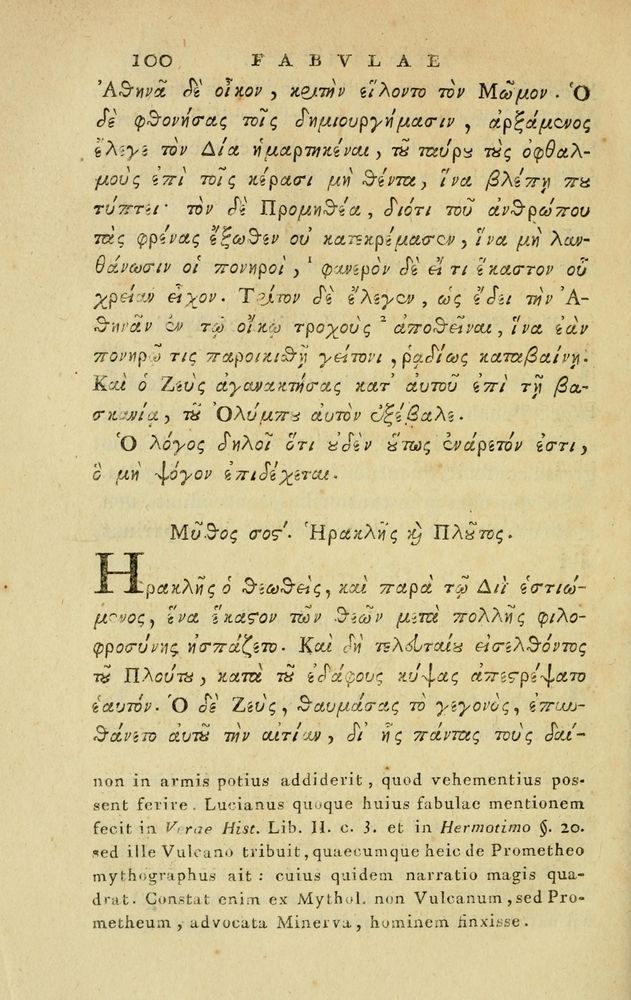 100 FABVLAE
Ἀθηνᾶ δὲ οἶκον, κριτὴν εἵλοντο τὸν Μῶμον. Ὁ
δὲ φθονήσας τοῖς δημιουργήμασιν, ἀρξάμενος
ἔλεγε τὸν Δία ἡμαρτηκέναι, τοῦ ταύρου τοὺς ὀφθαλ-
μοὺς ἐπὶ τοῖς κέρασι μὴ θέντα, ἵνα βλέπῃ που
τύπτει· τὸν δὲ Προμηθέα, διότι τοῦ ἀνθρώπου
τὰς φρένας ἔξωθεν οὐ κατεκρέμασεν, ἵνα μὴ λαν-
θάνωσιν οἱ πονηροὶ, ¹ φανερὸν δὲ εἴ τι ἕκαστον οὗ
χρείαν εἶχον. Τρίτον δὲ ἔλεγεν, ὡς ἔδει τὴν Ἀ-
θηνᾶν ἐν τῷ οἴκῳ τροχοὺς ² ἀποθεῖναι, ἵνα ἐὰν
πονηρῷ τις παροικιθῇ γείτονι, ῥαδίως καταβαίνῃ.
Καὶ ὁ Ζεὺς ἀγανακτήσας κατ' αὐτοῦ ἐπὶ τῇ βα-
σκανίᾳ, τοῦ Ὀλύμπου αὐτὸν ἐξέβαλε.
Ὁ λόγος δηλοῖ ὅτι οὐδὲν οὕτως ἐνάρετόν ἐστι,
ὃ μὴ ψόγον ἐπιδέχεται.
Μῦθος σοςʹ. Ἡρακλῆς καὶ Πλοῦτος.
Ἡρακλῆς ὁ θεωθεὶς, καὶ παρὰ τῷ Διῒ ἑστιώ-
μενος, ἕνα ἕκαστον τῶν θεῶν μετὰ πολλῆς φιλο-
φροσύνης ἠσπάζετο. Καὶ δὴ τελευταίου εἰσελθόντος
τοῦ Πλούτου, κατὰ τοῦ ἐδάφους κύψας ἀπεστρέψατο
ἑαυτόν. Ὁ δὲ Ζεὺς, θαυμάσας τὸ γεγονὸς, ἐπυν-
θάνετο αὐτοῦ τὴν αἰτίαν, δι' ἧς πάντας τοὺς δαί-
non in armis potius addiderit, quod vehementius pos-
sent ferire. Lucianus quoque huius fabulae mentionem
fecit in Verae Hist. Lib. II. c. 3. et in Hermotimo §. 20.
sed ille Vulcano tribuit, quaecumque heic de Prometheo
mythographus ait: cuius quidem narratio magis qua-
drat. Constat enim ex Mythol. non Vulcanum, sed Pro-
metheum, advocata Minerva, hominem finxisse.